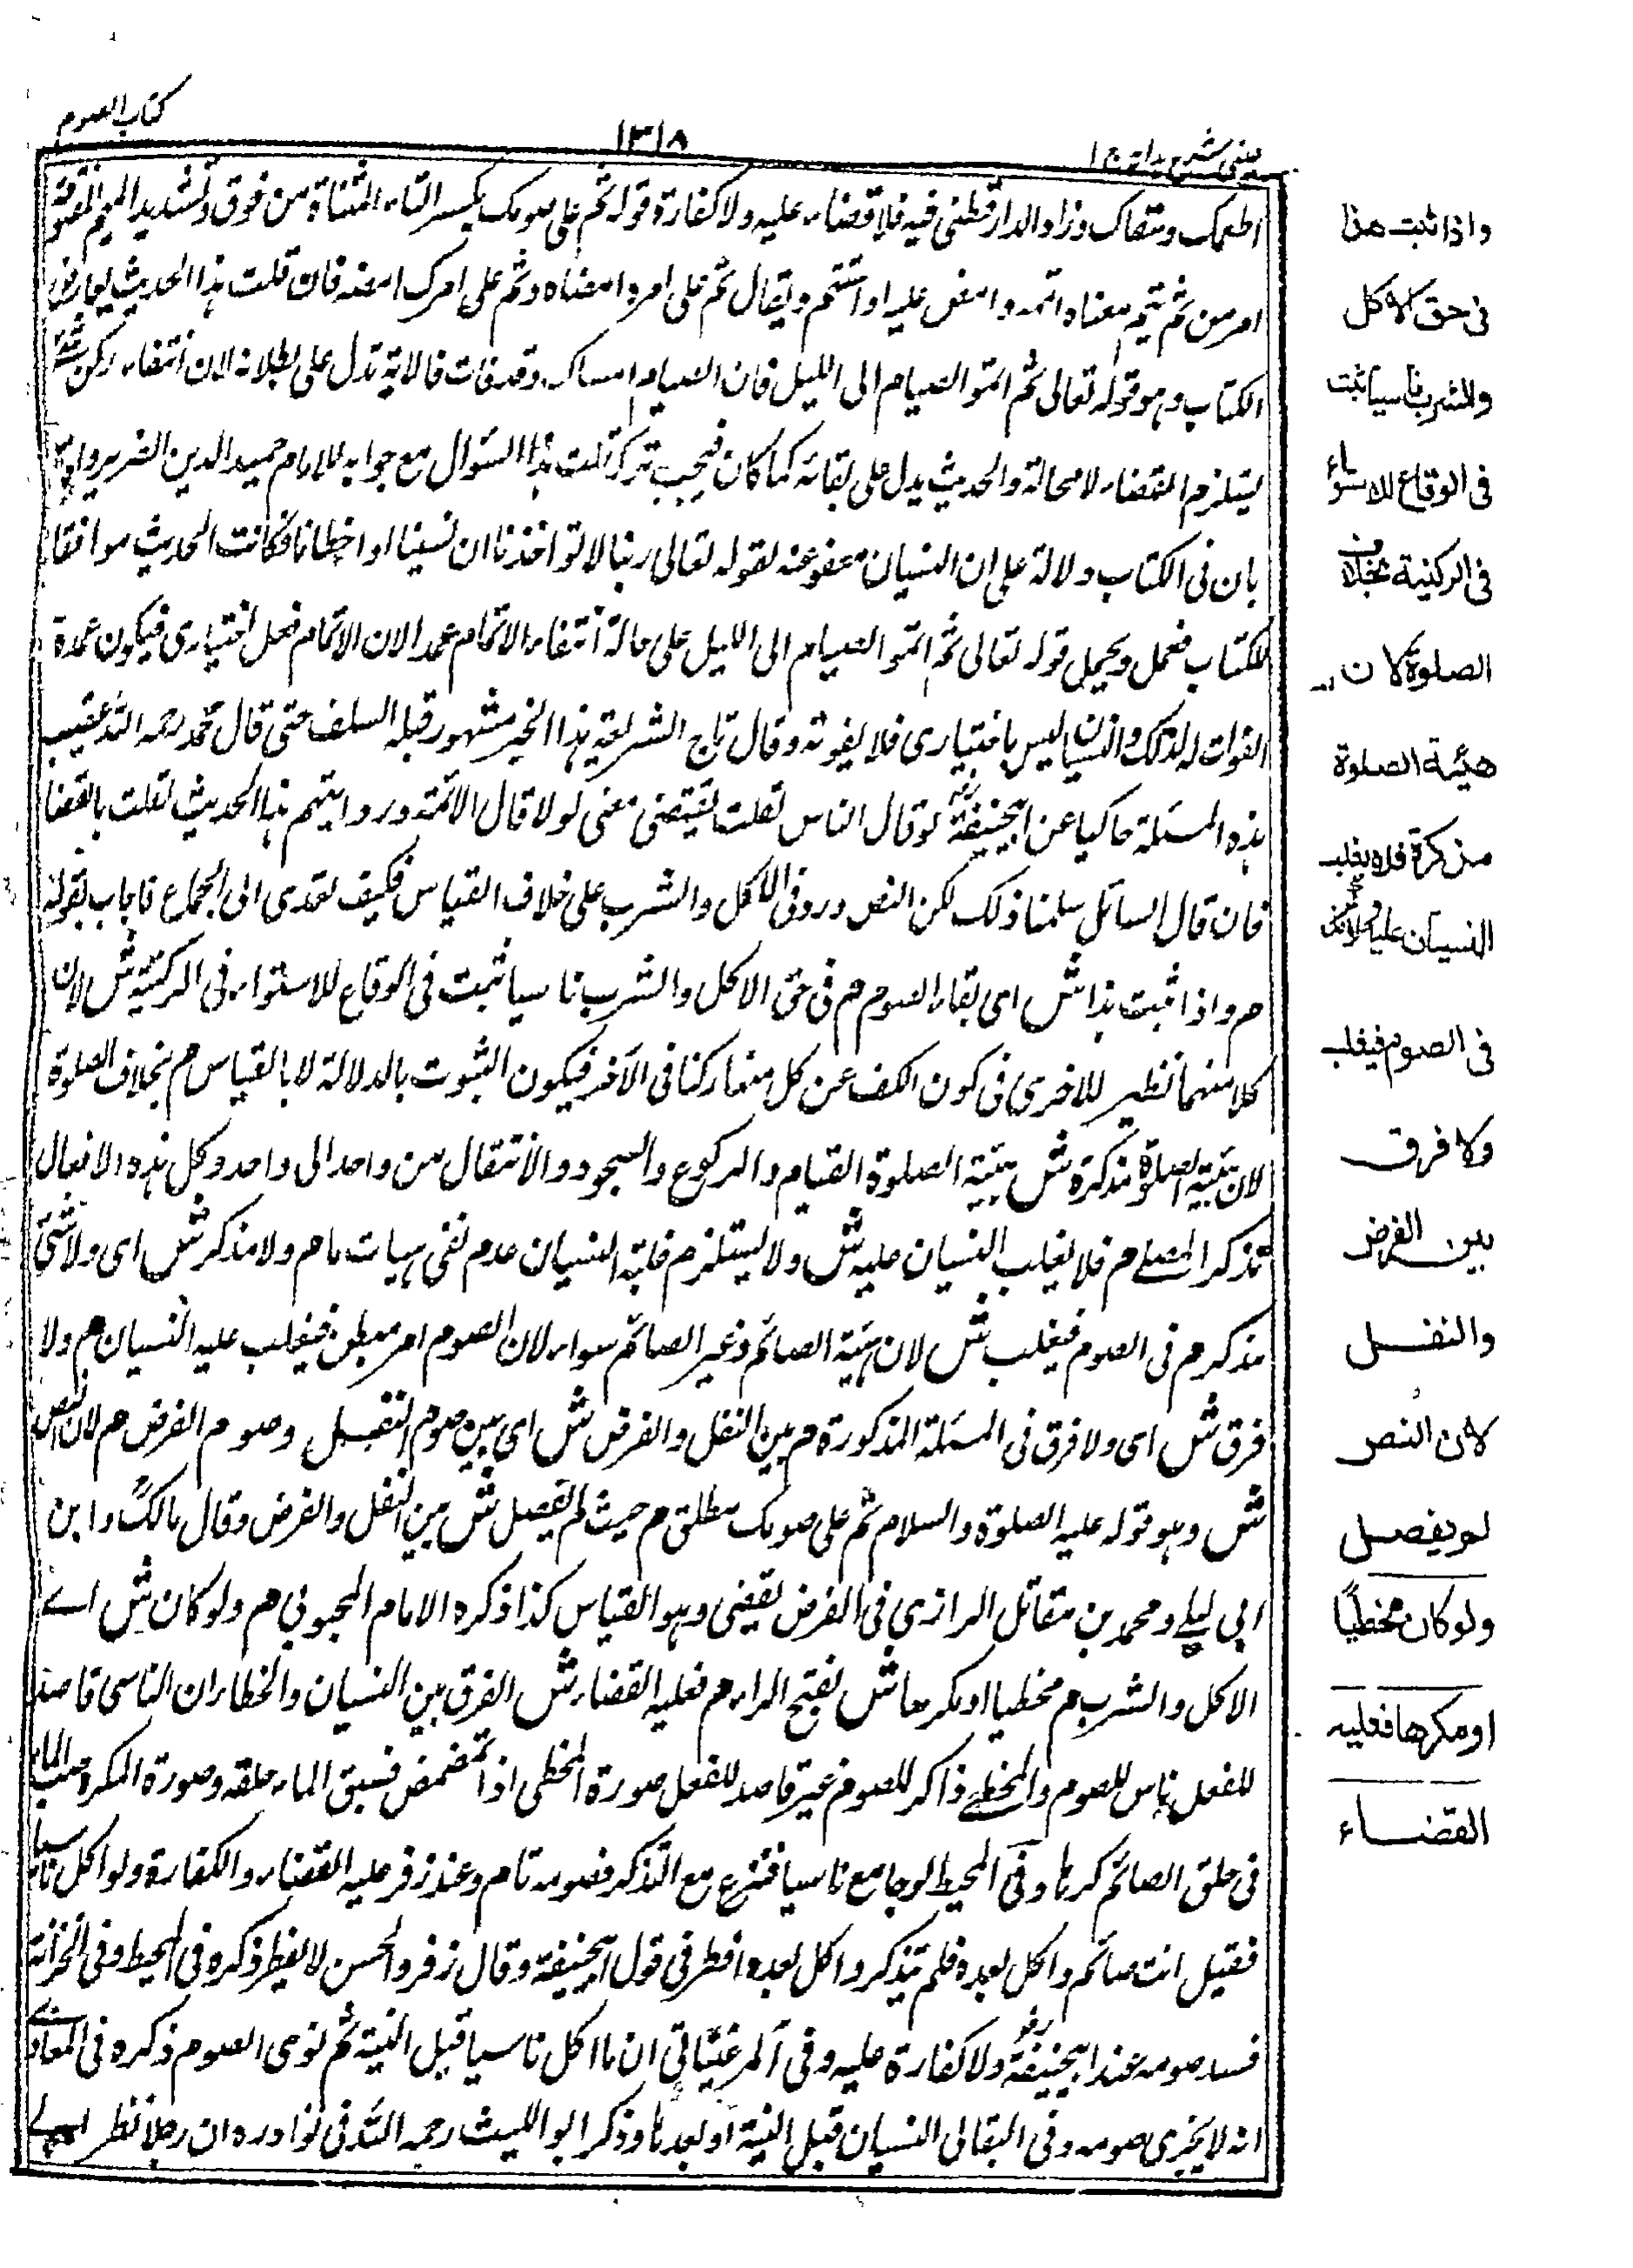 كتاب الصوم
١٣١٨
عينى شرح هداية ج ١
اطعمك وسقاك وزاد الدارقطنى فيه فلا قضاء عليه ولا كفارة قوله تم على صومك بكسر التاء المثناة من فوق وتشديد الميم المفتوحة
امر من تم يتم معناه اتمه وامض عليه او استتم ويقال تم على امره امضاه وتم على امرك امضه فان قلت هذا الحديث يعارض
الكتاب وهو قوله تعالى ثم اتموا الصيام الى الليل فان الصيام امساك وقد فات فالاية تدل على بطلانه لان انتفاء ركن شئ
يستلزم القضاء لا محالة والحديث يدل على بقائه كما كان فيجب تركه قلت هذا السؤال مع جوابه للامام حميد الدين الضرير واجاب
بان فى الكتاب دلالة على ان النسيان معفو عنه لقوله تعالى ربنا لا تواخذنا ان نسينا او اخطانا فكانت الحديث موافقا
للكتاب فعمل ويحمل قوله تعالى ثم اتموا الصيام الى الليل على حالة انتفاء الاتمام عمدا لان الاتمام فعل اختيارى فيكون عمدة
الفوات له لذلك والنسيان ليس باختيارى فلا يفوته وقال تاج الشريعة هذا الخبر مشهور قبله السلف حتى قال محمد رحمه الله عقيب
هذه المسئلة حاكيا عن ابيحنيفة رح لو قال الناس لقلت يقتضى معنى لولا قال الائمة وروايتهم هذا الحديث لقلت بالقضا
فان قال السائل سلمنا ذلك لكن النص ورد فى الاكل والشرب على خلاف القياس فكيف تعدى الى الجماع فاجاب بقوله
م واذا ثبت هذا ش اى بقاء الصوم م فى حق الاكل والشرب ناسيا ثبت فى الوقاع للاستواء فى الركنية ش لان
كلا منهما نظير للاخرى فى كون الكف عن كل منهما ركنا فى الآخر فيكون الثبوت بالدلالة لا بالقياس م بخلاف الصلوة
لان هيئة الصلوة مذكرة ش هيئة الصلوة القيام والركوع والسجود والانتقال من واحد الى واحد وكل هذه الافعال
تذكر المصلے م فلا يغلب النسيان عليه ش ولا يستلزم غلبة النسيان عدم نفى هيات ما م ولا مذكر ش اى ولا شئ
مذكر م فى الصوم فيغلب ش لان هيئة الصائم وغير الصائم سواء لان الصوم امر مبطن فيغلب عليه النسيان م ولا
فرق ش اى ولا فرق فى المسئلة المذكورة م بين النفل والفرض ش اى بين صوم النفل وصوم الفرض م لان النص
ش وهو قوله عليه الصلوة والسلام تم على صومك مطلق م حيث لم يفصل ش بين النفل والفرض وقال مالك وابن
ابى ليلے ومحمد بن مقاتل الرازى فى الفرض يقضى وهو القياس كذا ذكره الامام المحبوبى م ولو كان ش اے
الاكل والشرب م مخطيا او مكرها ش بفتح الراء م فعليه القضاء ش الفرق بين النسيان والخطاء ان الناسى قاصد
للفعل ناس للصوم والمخطے ذاكر للصوم غير قاصد للفعل صورة المخطى اذا تمضمض فسبق الماء حلقه وصورة المكره صب الماء
فى حلق الصائم كرها وفى المحيط لو جامع ناسيا فنزع مع التذكر فصومه تام وعند زفر عليه القضاء والكفارة ولو اكل ناسيا
فقيل انت صائم واكل بعده فلم يتذكر واكل بعده افطر فى قول ابيحنيفة وقال زفر والحسن لا يفطر ذكره فى المحيط وفى الخزانة
فسد صومه عند ابيحنيفة رح ولا كفارة عليه وفى المرغينانى ان ما اكل ناسيا قبل النية ثم نوى الصوم ذكره فى الفتاوے
انه لا يجزى صومه وفى البقالى النسيان قبل النية او بعدها وذكر ابو الليث رحمه الله فى نوادره ان رجلا نظر الے
واذا ثبت هذا
فى حق الاكل
والشرب ناسيا ثبت
فى الوقاع للاستواء
فى الركنية بخلاف
الصلوة لان
هيئة الصلوة
مذكرة فلا يغلب
النسيان عليه ولا مذكر
فى الصوم فيغلب
ولا فرق
بين الفرض
والنفل
لان النص
لم يفصل
ولو كان مخطيًا
او مكرها فعليه
القضاء